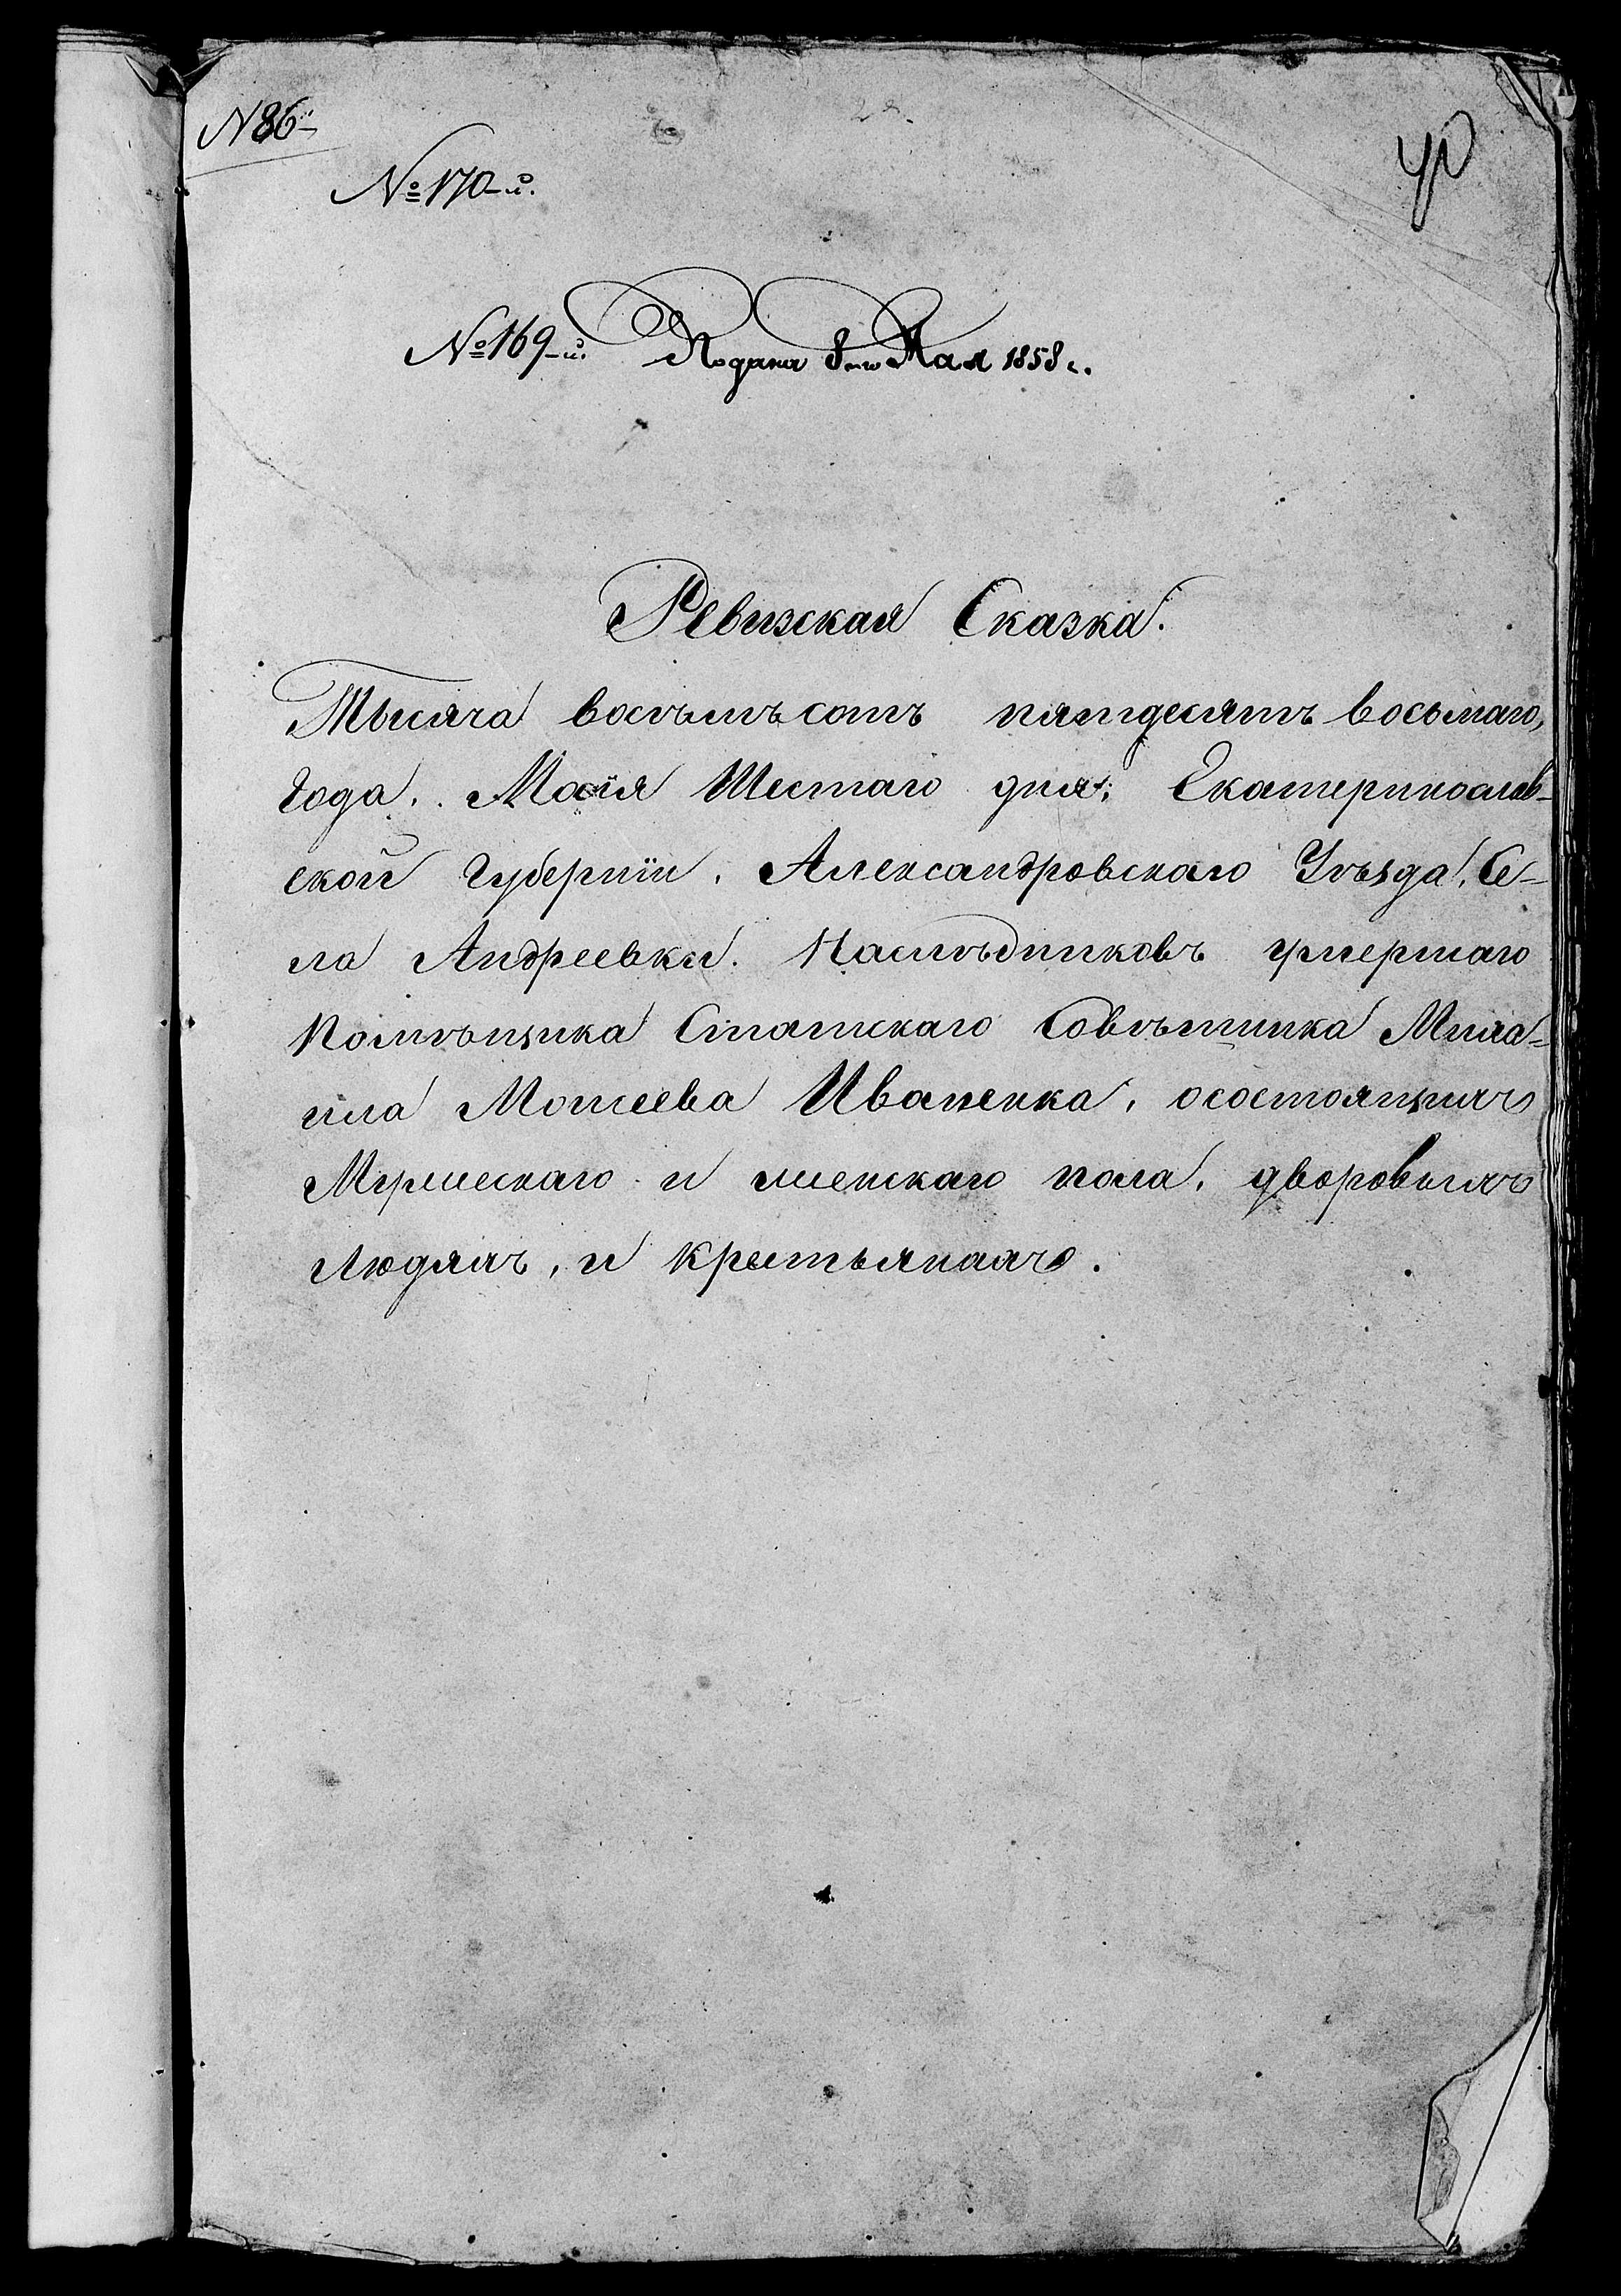 N 86й
№ 170-й.
№ 169-й. Подана 8го Мая 1858 г.
Ревизская Сказка.
Тысяча восѣмъсотъ пятдесятъ восьмаго,
Года. Маія Шестаго дня; Екатеринослав-
ской Губерніи. Александровскаго Уѣзда, Се-
ла Андреевки. Наслѣдниковъ умершаго
Помѣщика Статскаго Совѣтника Миха=
ила Моисеева Иваненка, осостоящихъ
Мужескаго и женскаго пола, дворовыхъ
людяхъ, и крестьянахъ.